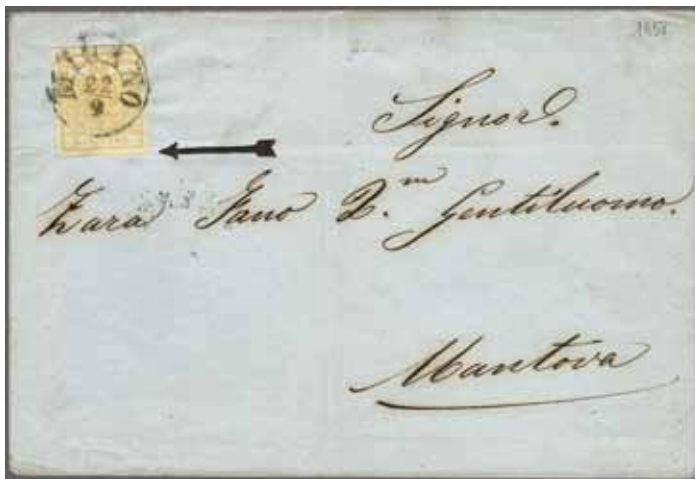 1857
MILANO
22
9
Signor.
Zara Fano Q.m Gentiluomo.
Mantova